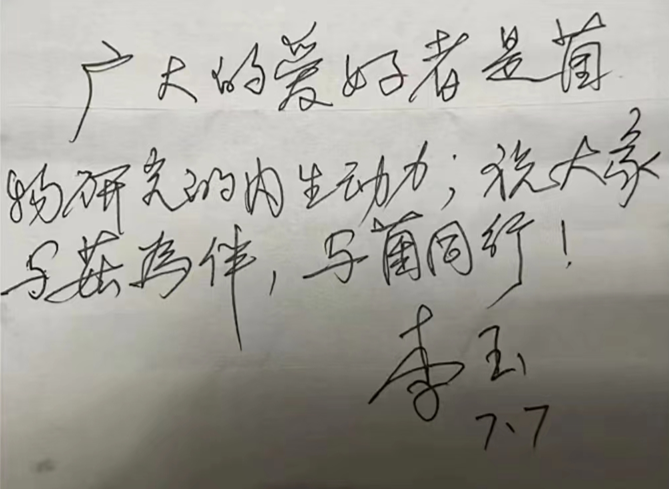 广大的爱好者是菌
物研究的内生动力；祝大家
与菇为伴，与菌同行！
李玉
7.7